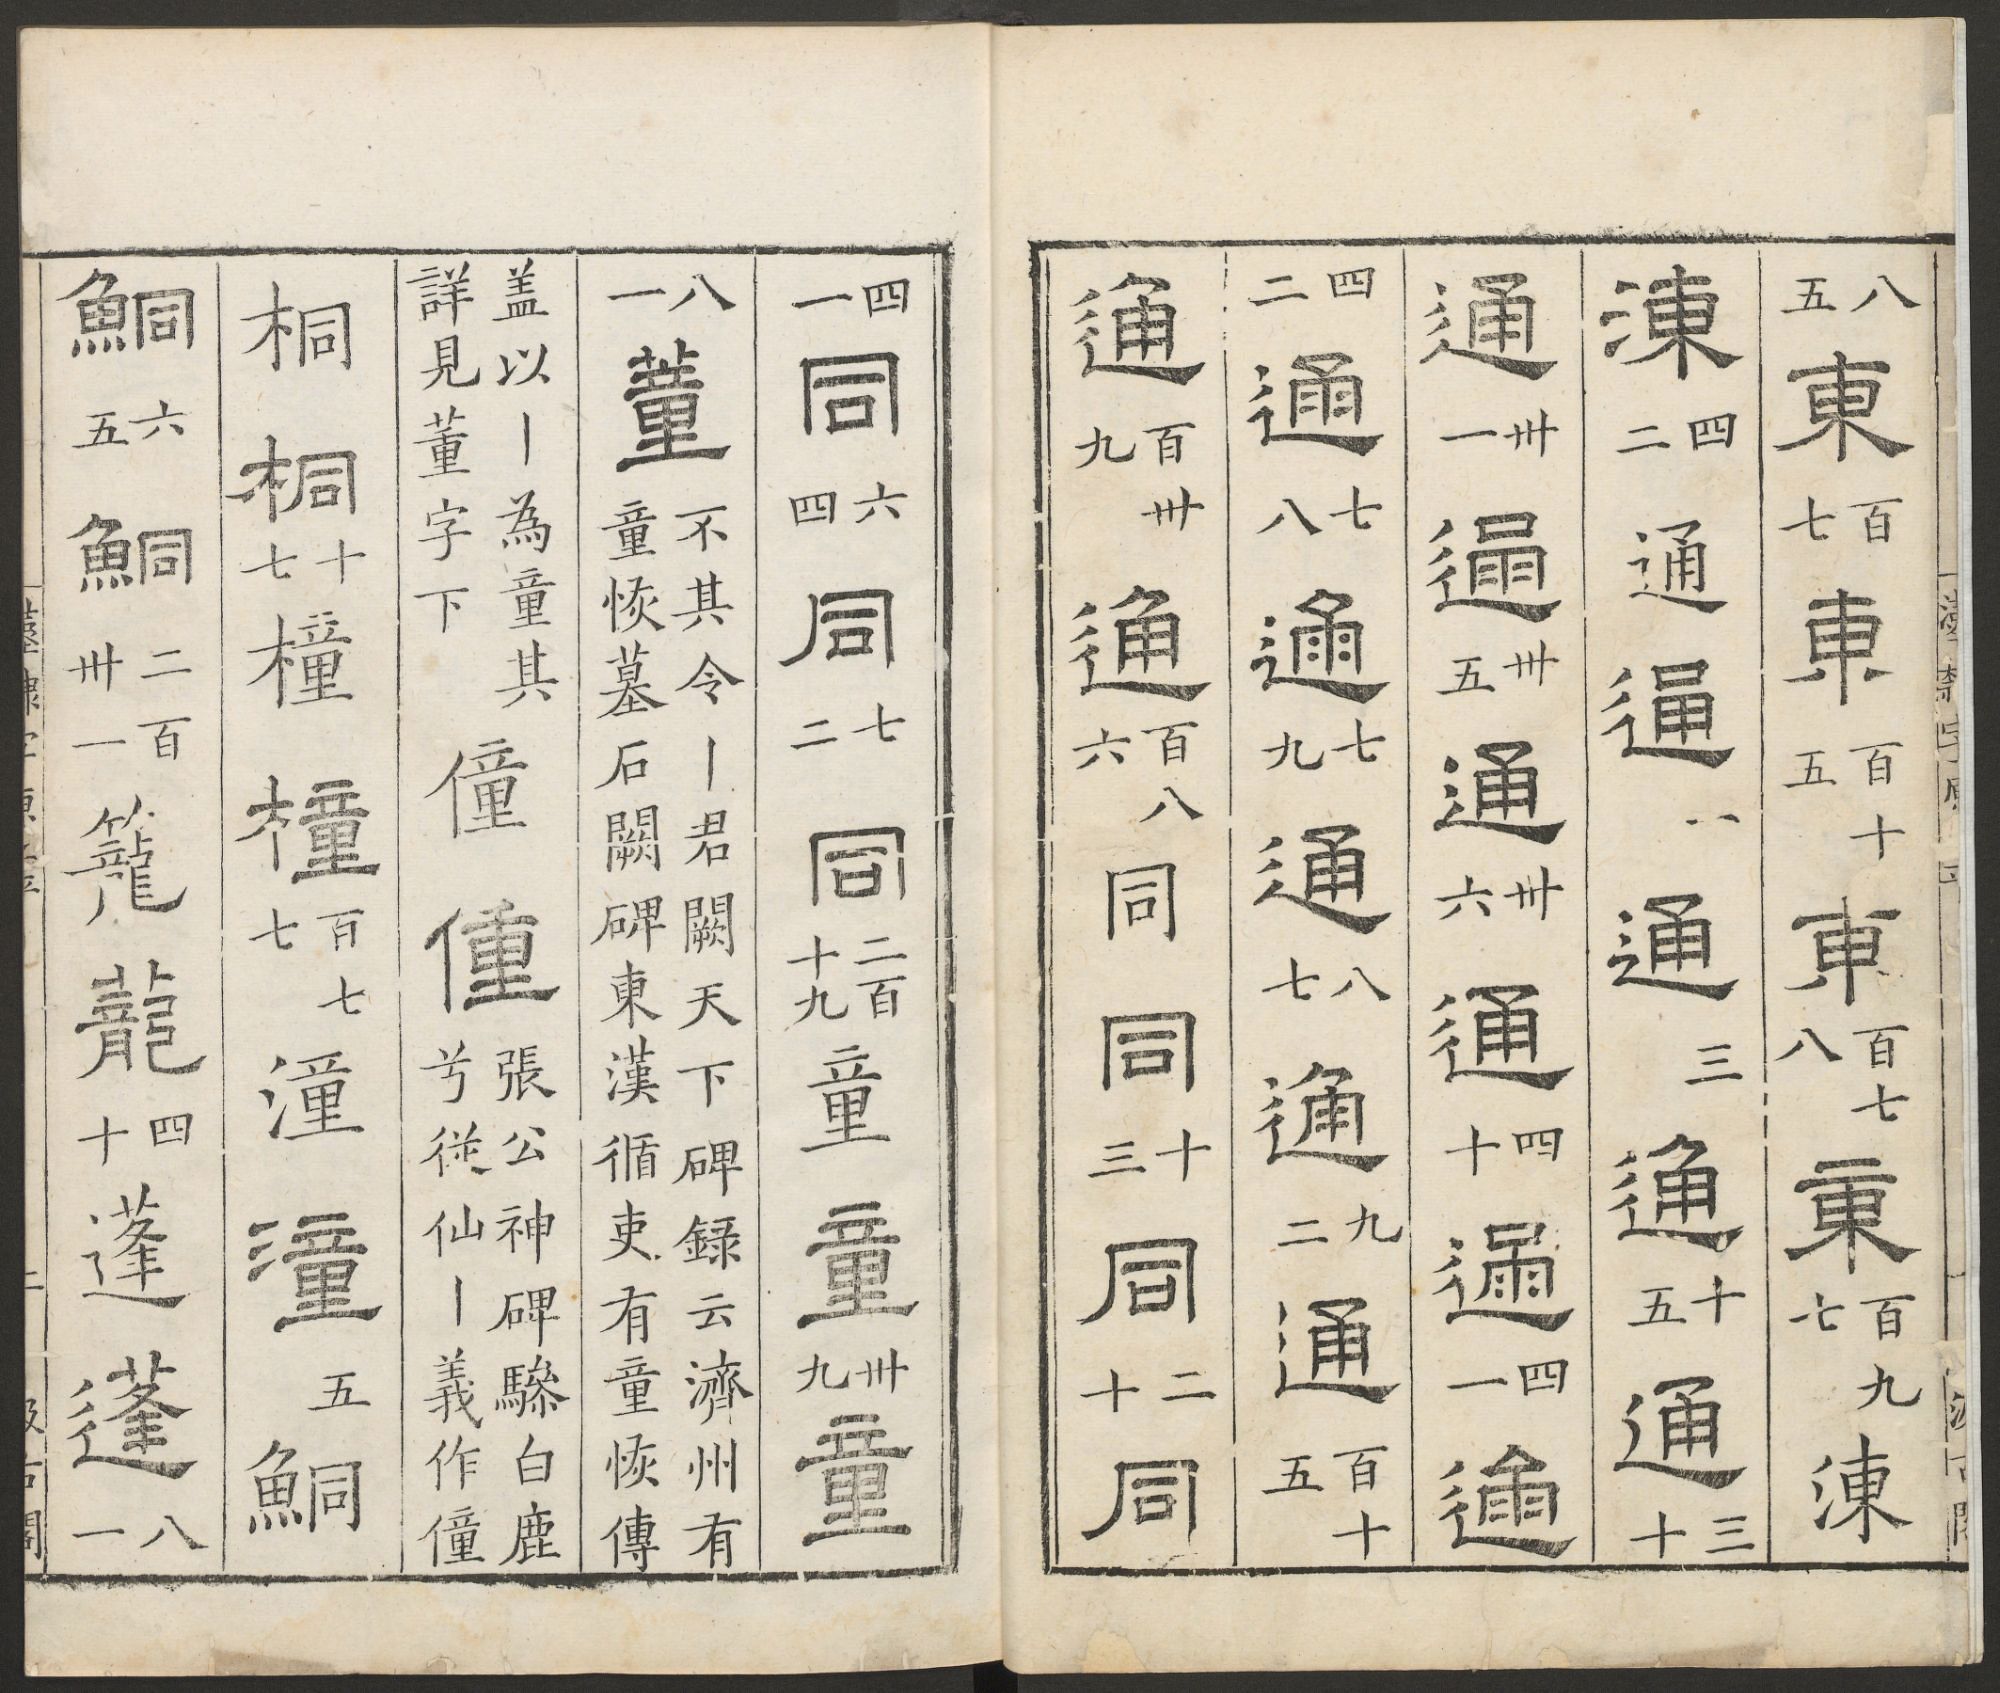 八五東百七東百十五東百七八東百九七涷
涷四二通通八通三通十五通三十
通卅一通卅五通卅六通四十通四一通
四二通七八通七九通八七通九二通百十五
通百卅九通百八六同同十三同二十同
四一同六四同七二同二百十九童童卅九童
八一董不其令丨君闕天下碑録云濟州有
童恢墓石闕碑東漢循吏有童恢傳
盖以丨為童其詳見董字下僮僮張公神碑驂白鹿
兮從仙丨義作僮
桐桐十七橦橦百七七潼潼五鮦
鮦六五鮦二百卅一籠蘢四十蓬蓬八一
漢隸字原
汲古閣